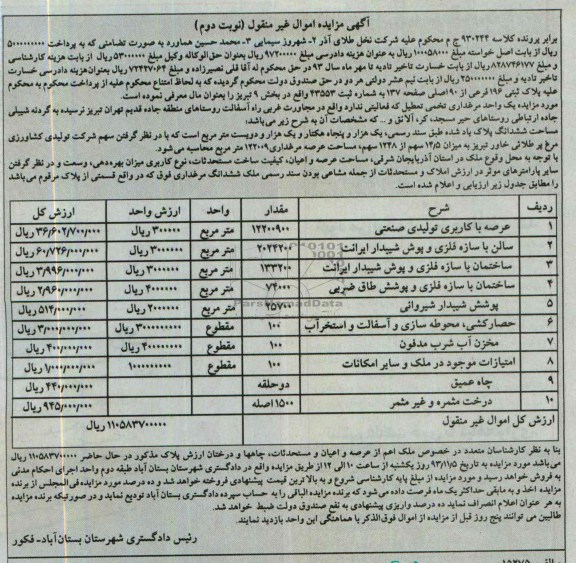 آگهی مزایده اموال غیر منقول (نوبت دوم)
برابر پرونده کلاسه ۹۳۰۲۴۴ ج م محکوم علیه شرکت نخل طلای آذر ۲- شهروز سیمایی ۳- محمد حسین هماورد به صورت تضامنی که به پرداخت ۵۰۰۰۰۰۰۰۰۰
ریال از بابت اصل خواسته مبلغ ۱۰۰۰۵۸۰۰۰ ریال به عنوان هزینه دادرسی مبلغ ۹۷۲۰۰۰۰۰ ریال بعنوان حق الوکاله وکیل مبلغ ۵۳۰۰۰۰۰ ریال از بابت هزینه کارشناسی
و مبلغ ۸۲۸۷۴۶۱۷۷ ریال از بابت خسارت تاخیر تادیه تا مهر ماه سال ۹۳ در حق محکوم له آقا قلی نصیرزاده و مبلغ ۷۲۴۴۷۰۶۴ ریال بعنوان هزینه دادرسی خسارت
تاخیر تادیه و مبلغ ۲۵۰۰۰۰۰۰۰ ریال از بابت نیم عشر دولتی هر دو در حق صندوق دولت محکوم گردیده که به لحاظ امتناع محکوم علیه از پرداخت محکوم به محکوم
علیه پلاک ثبتی ۱۹۶ فرعی از ۹۰ اصلی صفحه ۱۳۷ به شماره ثبت ۴۳۵۵۳ واقع در بخش ۹ تبریز را بعنوان مال معرفی نموده است.
مورد مزایده یک واحد مرغداری تخمی تعطیل که فعالیتی ندارد واقع در مجاورت غربی راه آسفالت روستاهای منطقه جاده قدیم تهران تبریز نرسیده به گردنه شیبلی
جاده ارتباطی روستاهای حیر مسجد، کر، آلانق و .. که مشخصات آن به شرح زیر می باشد؛
مساحت ششدانگ پلاک یاد شده طبق سند رسمی، یک هزار و پنجاه هکتار و یک هزار و دویست متر مربع است که با در نظر گرفتن سهم شرکت تولیدی کشاورزی
مرغ پر طلائی خاور تبریز به میزان ۱۴/۵ سهم از ۱۲۴۸ سهم، مساحت عرصه مرغداری ۱۲۲۰۰۹ متر مربع محاسبه می شود.
با توجه به محل وقوع ملک در استان آذربایجان شرقی، مساحت عرصه و اعیان، کیفیت ساخت مستحدثات، نوع کاربری میزان بهره دهی، وسعت و در نظر گرفتن
سایر پارامترهای موثر در ارزش املاک و مستحدثات از جمله مشاعی بودن سند رسمی ملک ششدانگ مرغداری فوق که در واقع قسمتی از پلاک مرقوم می باشد
را مطابق جدول زیر ارزیابی و اعلام شده است.
ردیف شرح مقدار واحد ارزش واحد ارزش کل
۱ عرصه با کاربری تولیدی صنعتی ۱۲۲۰۰۹۰۰ متر مربع ۳۰۰۰۰۰ ریال ۳۶/۶۰۲/۷۰۰/۰۰۰ ریال
۲ سالن با سازه فلزی و پوش شیبدار ایرانت ۲۰۲۴۲۰۰ متر مربع ۳۰۰۰۰۰۰ ریال ۶۰/۷۲۶/۰۰۰/۰۰۰ ریال
۳ ساختمان با سازه فلزی و پوش شیبدار ایرانت ۱۳۳۲۰۰ متر مربع ۳۰۰۰۰۰۰ ریال ۳/۹۹۶/۰۰۰/۰۰۰ ریال
۴ ساختمان با سازه فلزی و پوشش طاق ضربی ۷۴۰۰۰ متر مربع ۴۰۰۰۰۰۰ ریال ۲/۹۶۰/۰۰۰/۰۰۰ ریال
۵ پوشش شیبدار شیروانی ۲۵۷۰۰ متر مربع ۲۰۰۰۰۰۰ ریال ۵۱۴/۰۰۰/۰۰۰ ریال
۶ حصارکشی، محوطه سازی و آسفالت و استخر آب ۱۰۰ مقطوع ۳۰۰۰۰۰۰۰۰۰ ریال ۳/۰۰۰/۰۰۰/۰۰۰ ریال
۷ مخزن آب شرب مدفون ۱۰۰ مقطوع ۴۰۰۰۰۰۰۰۰ ریال ۴۰۰/۰۰۰/۰۰۰ ریال
۸ امتیازات موجود در ملک و سایر امکانات ۱۰۰ مقطوع ۱۰۰۰۰۰۰۰۰۰ ۱/۰۰۰/۰۰۰/۰۰۰ ریال
۹ چاه عمیق دو حلقه ۴۴۰/۰۰۰/۰۰۰ ریال
۱۰ درخت مثمره و غیر مثمر ۱۵۰۰ اصله ۹۴۵/۰۰۰/۰۰۰ ریال
ارزش کل اموال غیر منقول ۱۱۰۵۸۳۷۰۰۰۰۰ ریال
بنا به نظر کارشناسان متعدد در خصوص ملک اعم از عرصه و اعیان و مستحدثات، چاهها و درختان ارزش پلاک مذکور در حال حاضر ۱۱۰۵۸۳۷۰۰۰۰۰ ریال
می باشد مورد مزایده به تاریخ ۹۳/۱۱/۵ روز یکشنبه از ساعت ۱۰ الی ۱۲ از طریق مزایده واقع در دادگستری شهرستان بستان آباد طبقه دوم واحد اجرای احکام مدنی
به فروش خواهد رسید و مورد مزایده از مبلغ پایه کارشناسی شروع و به بالاترین قیمت پیشنهادی فروخته خواهد شد و ده درصد مورد مزایده فی المجلس از برنده
مزایده اخذ و به مابقی حداکثر یک ماه فرصت داده می شود که برنده مزایده الباقی را به حساب سپرده دادگستری بستان آباد تودیع نماید و در صورتیکه برنده مزایده
به هر عنوان اعلام انصراف نماید ده درصد واریزی پیشنهادی به نفع صندوق دولت ضبط خواهد شد.
طالبین می توانند پنج روز قبل از مزایده از اموال فوق الذکر با هماهنگی این واحد بازدید نمایند.
رئیس دادگستری شهرستان بستان آباد- فکور
ParsNamadData